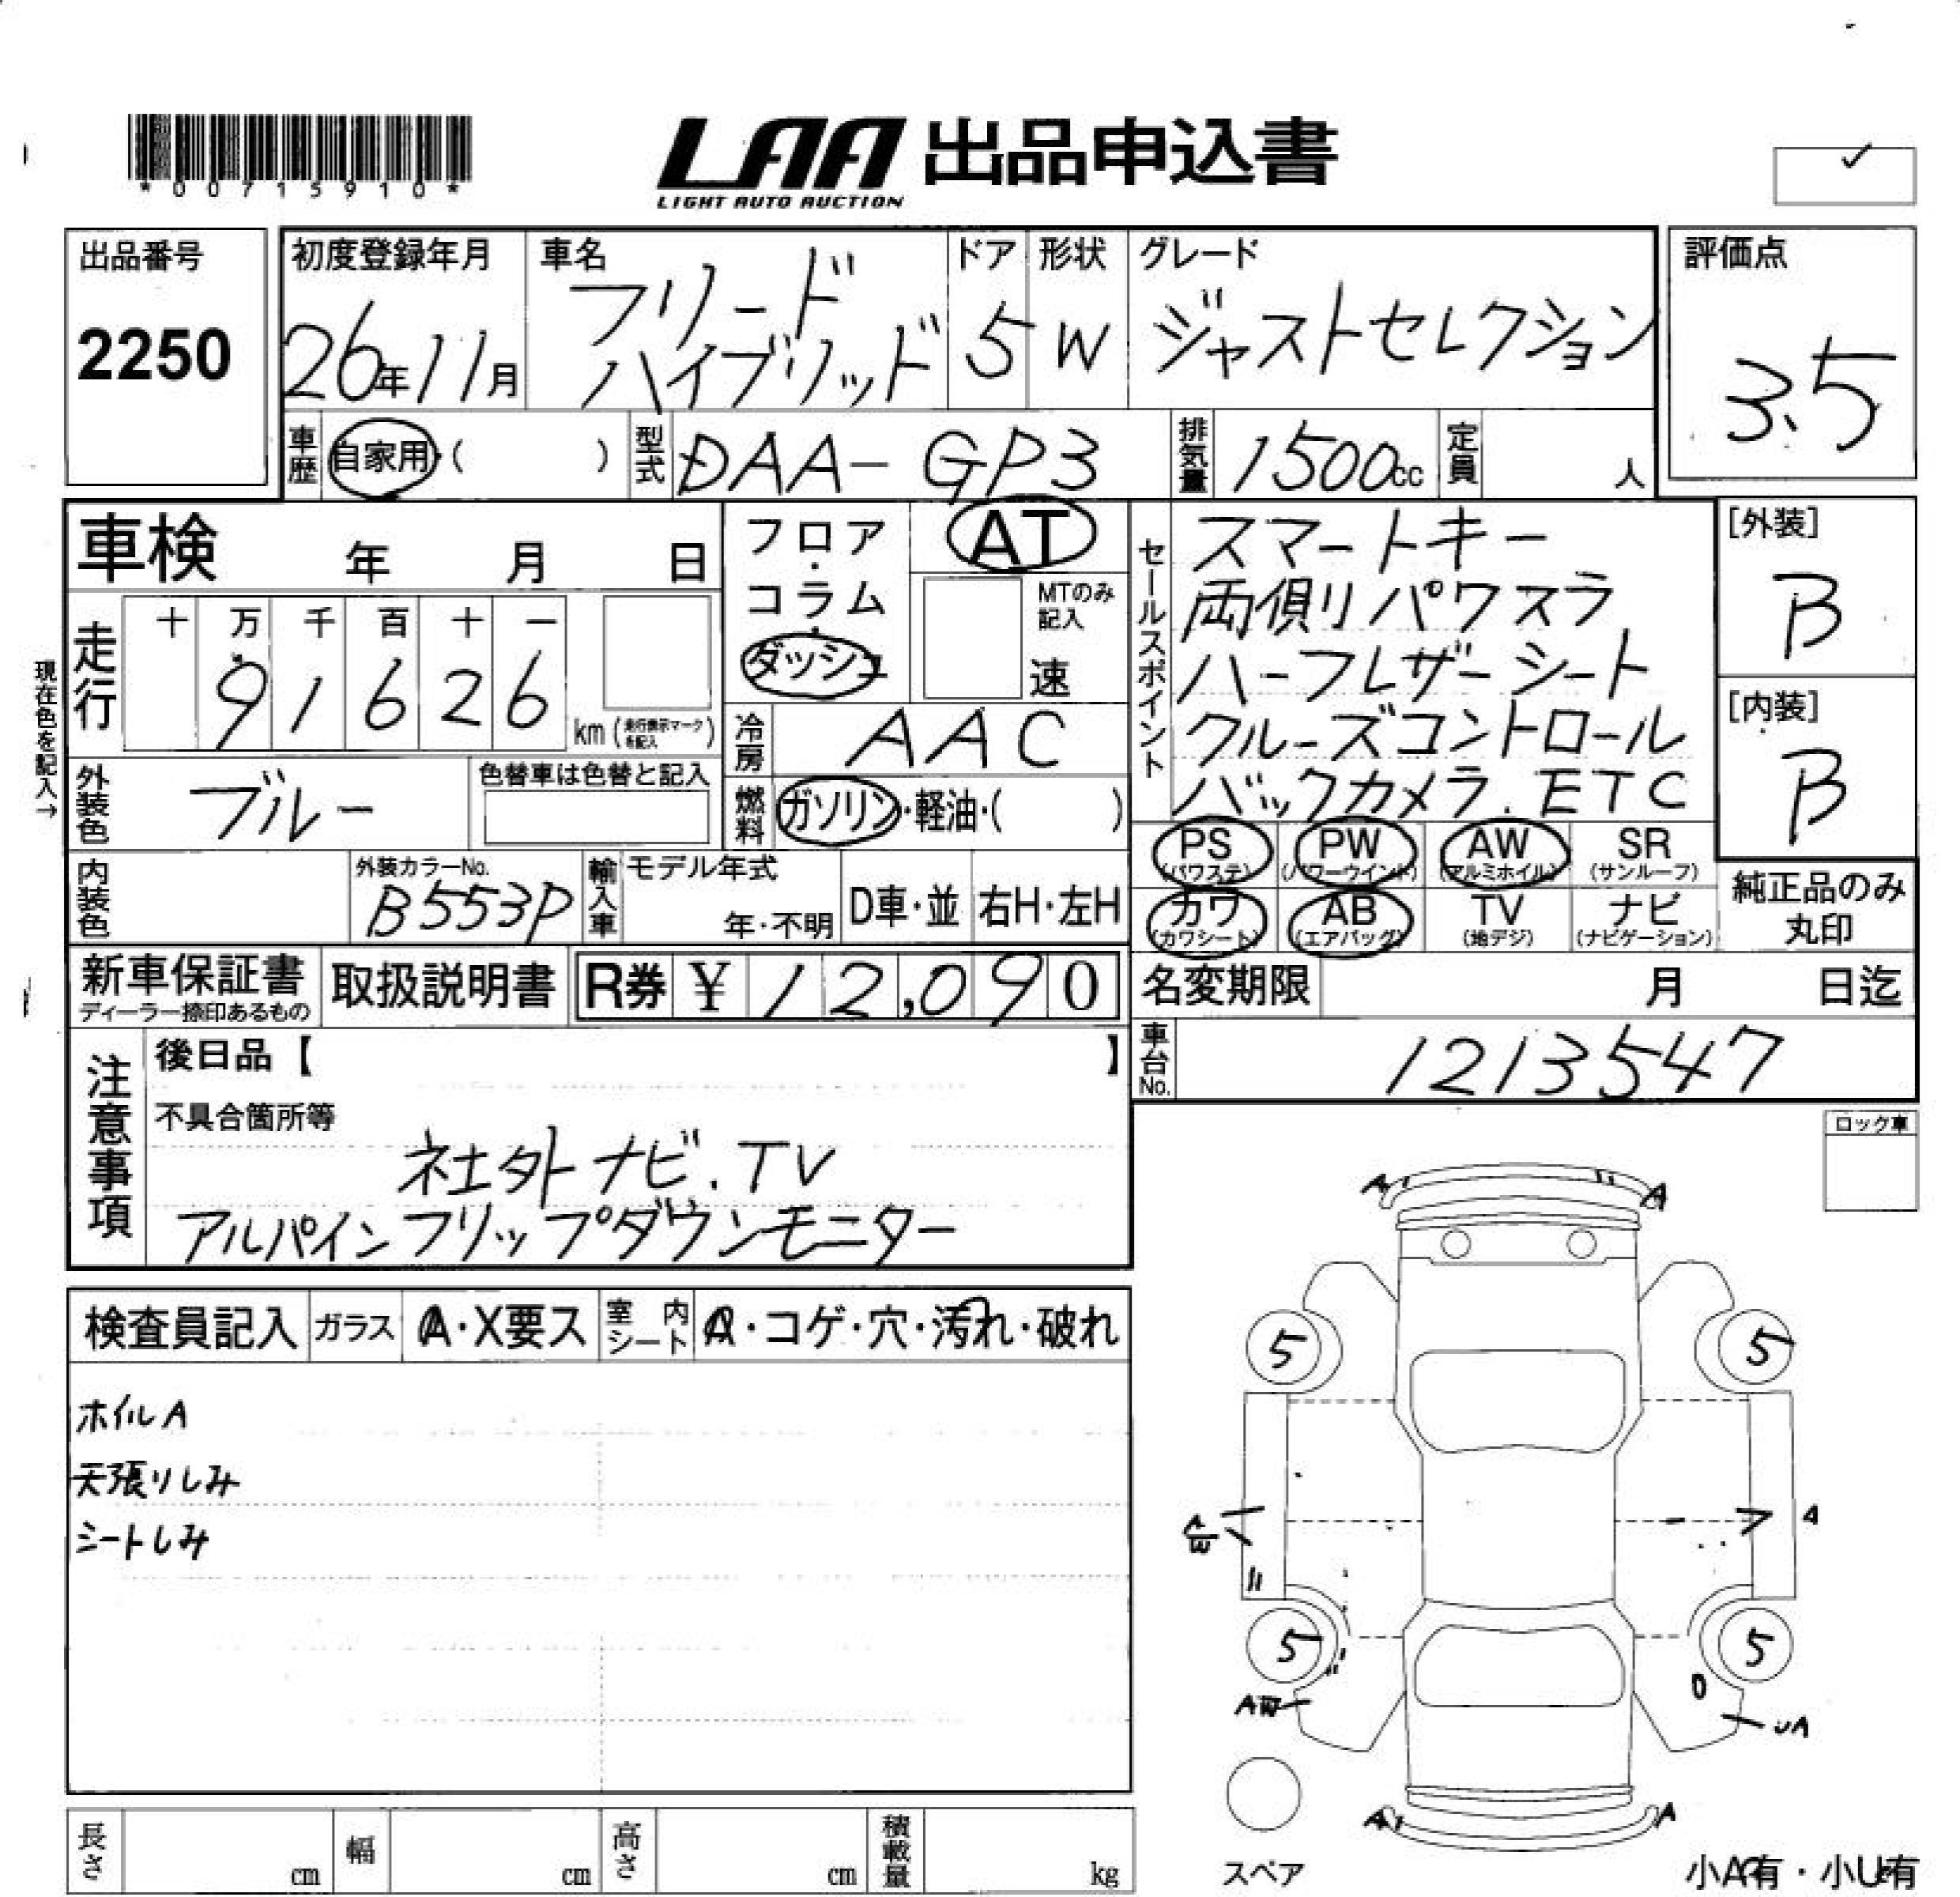 *00715910*
LAA 出品申込書
LIGHT AUTO AUCTION
出品番号
2250
初度登録年月
26年11月
車名
フリード
ハイブリッド
ドア
5
形状
W
グレード
ジャストセレクション
評価点
3.5
車歴 自家用・( )
型式 DAA-GP3
排気量 1500cc
定員 人
車検 年 月 日
フロア・コラム・ダッシュ
AT
MTのみ記入
速
セールスポイント
スマートキー
両側リパワスラ
ハーフレザーシート
クルーズコントロール
バックカメラ.ETC
[外装]
B
[内装]
B
現在色を記入→
走行
十 万 千 百 十 一
9 1 6 2 6
km(走行表示マークを記入)
冷房 AAC
外装色 ブルー
色替車は色替と記入
燃料 ガソリン・軽油・( )
PS (パワステ)
PW (パワーウインド)
AW (アルミホイル)
SR (サンルーフ)
カワ (カワシート)
AB (エアバッグ)
TV (地デジ)
ナビ (ナビゲーション)
純正品のみ
丸印
内装色
外装カラーNo.
B553P
輸入車
モデル年式
年・不明
D車・並
右H・左H
新車保証書
ディーラー捺印あるもの
取扱説明書
R券 ¥ 12,090
名変期限 月 日迄
車台No. 1213547
注意事項
後日品【 】
不具合箇所等
社外ナビ.TV
アルパインフリップダウンモニター
ロック車
検査員記入
ガラス
A・X要ス
室内シート
A・コゲ・穴・汚れ・破れ
ホイルA
天張りしみ
シートしみ
A
A
5
5
A
W
A
5
5
AW
UA
A
A
スペア
小A有・小U有
長さ cm
幅 cm
高さ cm
積載量 kg